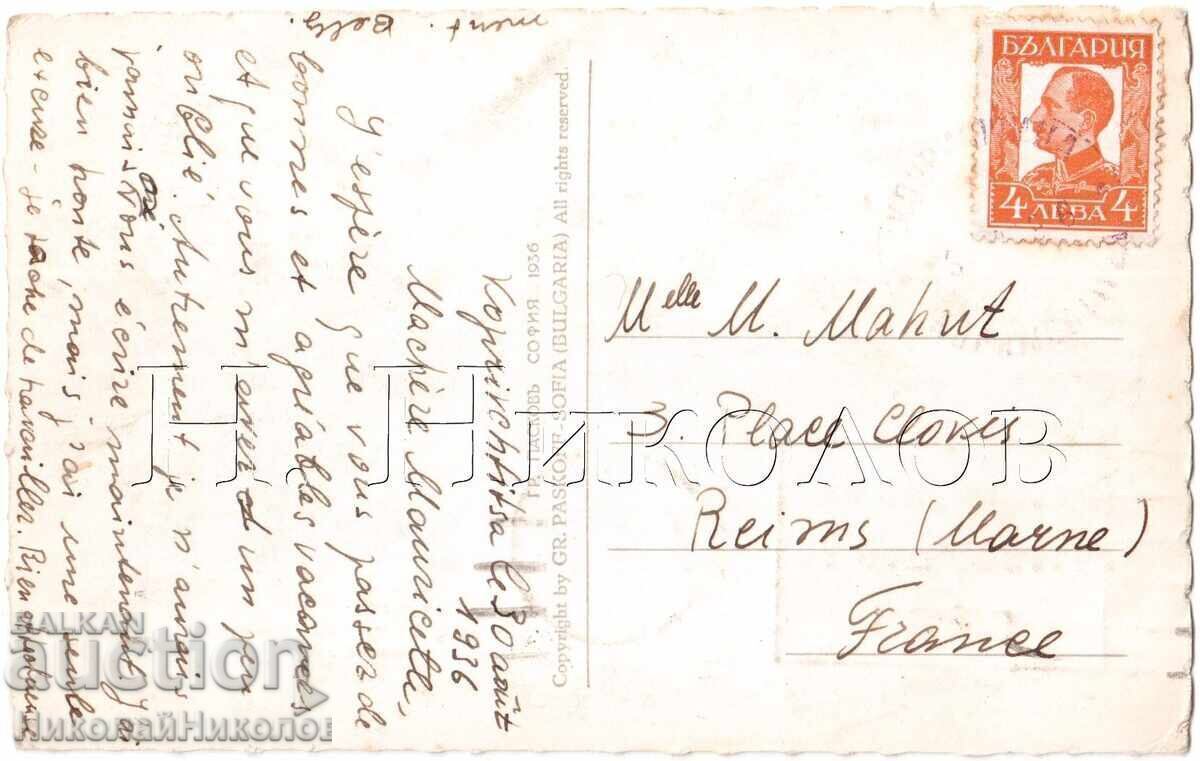 Koprivchtitsa le 30 août
1936
Ma chère Mauricette,
J'espère que vous passez de
bonnes et agréables vacances
et que vous m'avez un peu
oublié. Autrement je n'aurais
osé
vous écrire maintenant. J'ai
bien honte, mais j'ai une seule
excuse - je tache de travailler. Rien
ment. Betty
ГР. ПАСКОВЪ СОФИЯ 1936
Copyright by GR. PASKOFF-SOFIA (BULGARIA) All rights reserved.
БЪЛГАРИЯ
4 ЛЕВА 4
Melle M. Mahut
3. Place Clovis
Reims (Marne)
France
Н. НИКОЛОВ
BALKAN
auction
НиколайНиколов